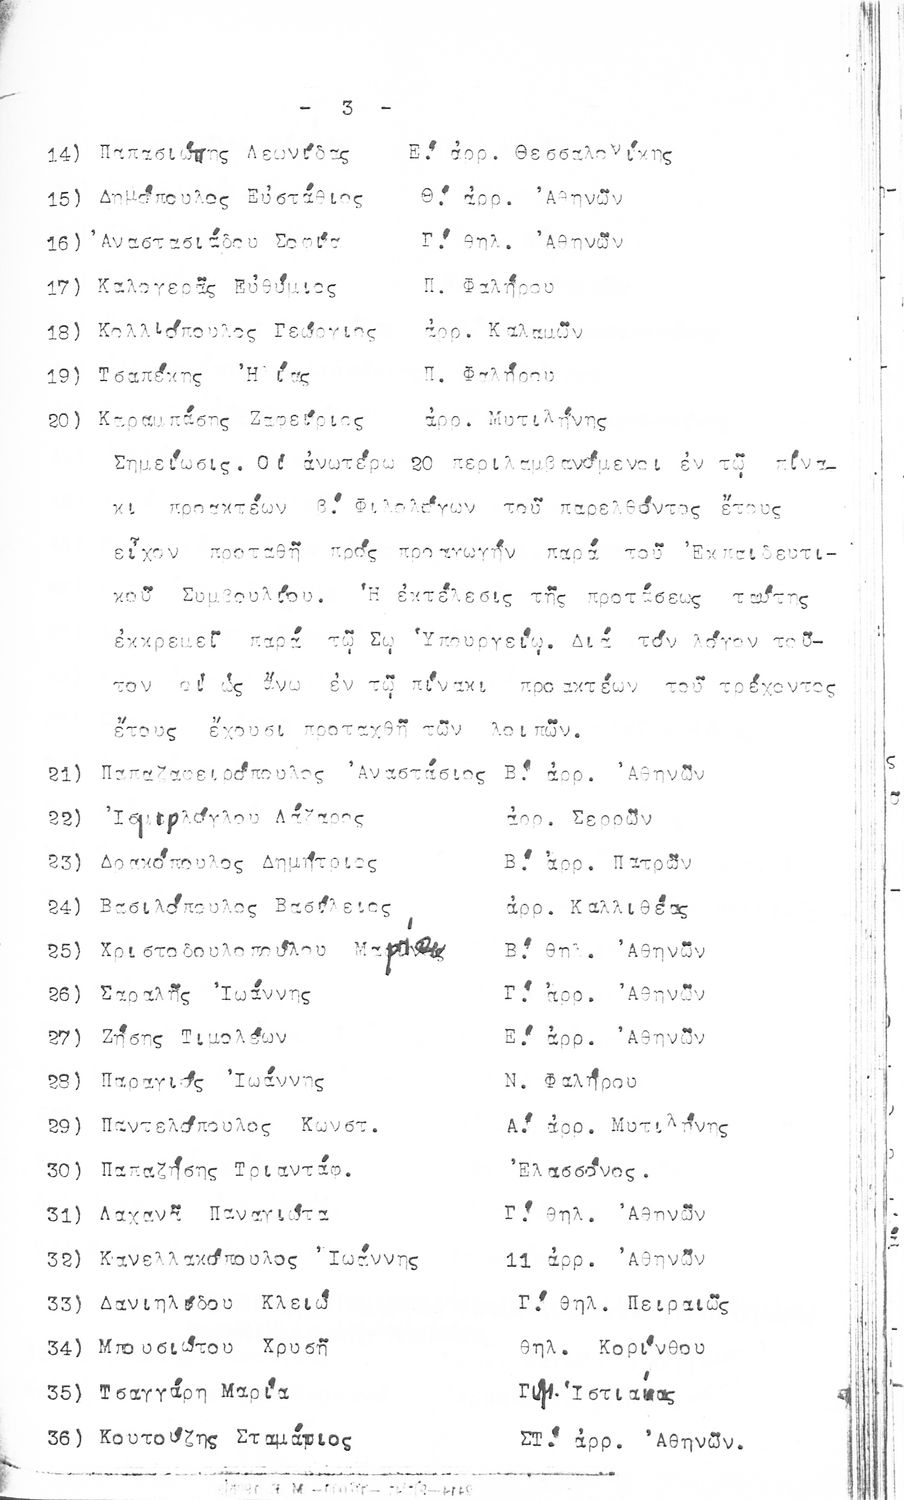 - 3 -
14) Παπασιώπης Λεωνίδας Ε! ἀρρ. Θεσσαλονίκης
15) Δημόπουλος Εὐστάθιος Θ! ἀρρ. Ἀθηνῶν
16) Ἀναστασιάδου Σοφία Γ! θηλ. Ἀθηνῶν
17) Καλογερᾶς Εὐθύμιος Π. Φαλήρου
18) Κολλιόπουλος Γεώργιος ἀρρ. Καλαμῶν
19) Τσαπέκης Ἠ ίας Π. Φαλήρου
20) Καραμπάσης Ζαφείριος ἀρρ. Μυτιλήνης
Σημείωσις. Οἱ ἀνωτέρω 20 περιλαμβανόμενοι ἐν τῷ πίνα-
κι προακτέων β! Φιλολόγων τοῦ παρελθόντος ἔτους
εἶχον προταθῆ πρός προαγωγήν παρά τοῦ Ἐκπαιδευτι-
κοῦ Συμβουλίου. Ἡ ἐκτέλεσις τῆς προτάσεως ταύτης
ἐκκρεμεῖ παρά τῷ Σῳ Ὑπουργείῳ. Διά τόν λόγον τοῦ-
τον οἱ ὡς ἄνω ἐν τῷ πίνακι προακτέων τοῦ τρέχοντος
ἔτους ἔχουσι προταχθῆ τῶν λοιπῶν.
21) Παπαζαφειρόπουλος Ἀναστάσιος Β! ἀρρ. Ἀθηνῶν
22) Ἰσμιρλόγλου Λάζαρος ἀρρ. Σερρῶν
23) Δρακόπουλος Δημήτριος Β! ἀρρ. Πατρῶν
24) Βασιλόπουλος Βασίλειος ἀρρ. Καλλιθέας
25) Χριστοδουλοπούλου Β! θηλ. Ἀθηνῶν
26) Σαραλῆς Ἰωάννης Γ! ἀρρ. Ἀθηνῶν
27) Ζήσης Τιμολέων Ε! ἀρρ. Ἀθηνῶν
28) Παραγιός Ἰωάννης Ν. Φαλήρου
29) Παντελόπουλος Κωνστ. Α! ἀρρ. Μυτιλήνης
30) Παπαζήσης Τριαντάφ. Ἐλασσόνος.
31) Λαχανᾶ Παναγιώτα Γ! θηλ. Ἀθηνῶν
32) Κανελλακόπουλος Ἰωάννης 11 ἀρρ. Ἀθηνῶν
33) Δανιηλίδου Κλειώ Γ! θηλ. Πειραιῶς
34) Μπουσιώτου Χρυσῆ θηλ. Κορίνθου
35) Τσαγγάρη Μαρία Ἱστιαίας
36) Κουτούζης Σταμάτιος ΣΤ! ἀρρ. Ἀθηνῶν.